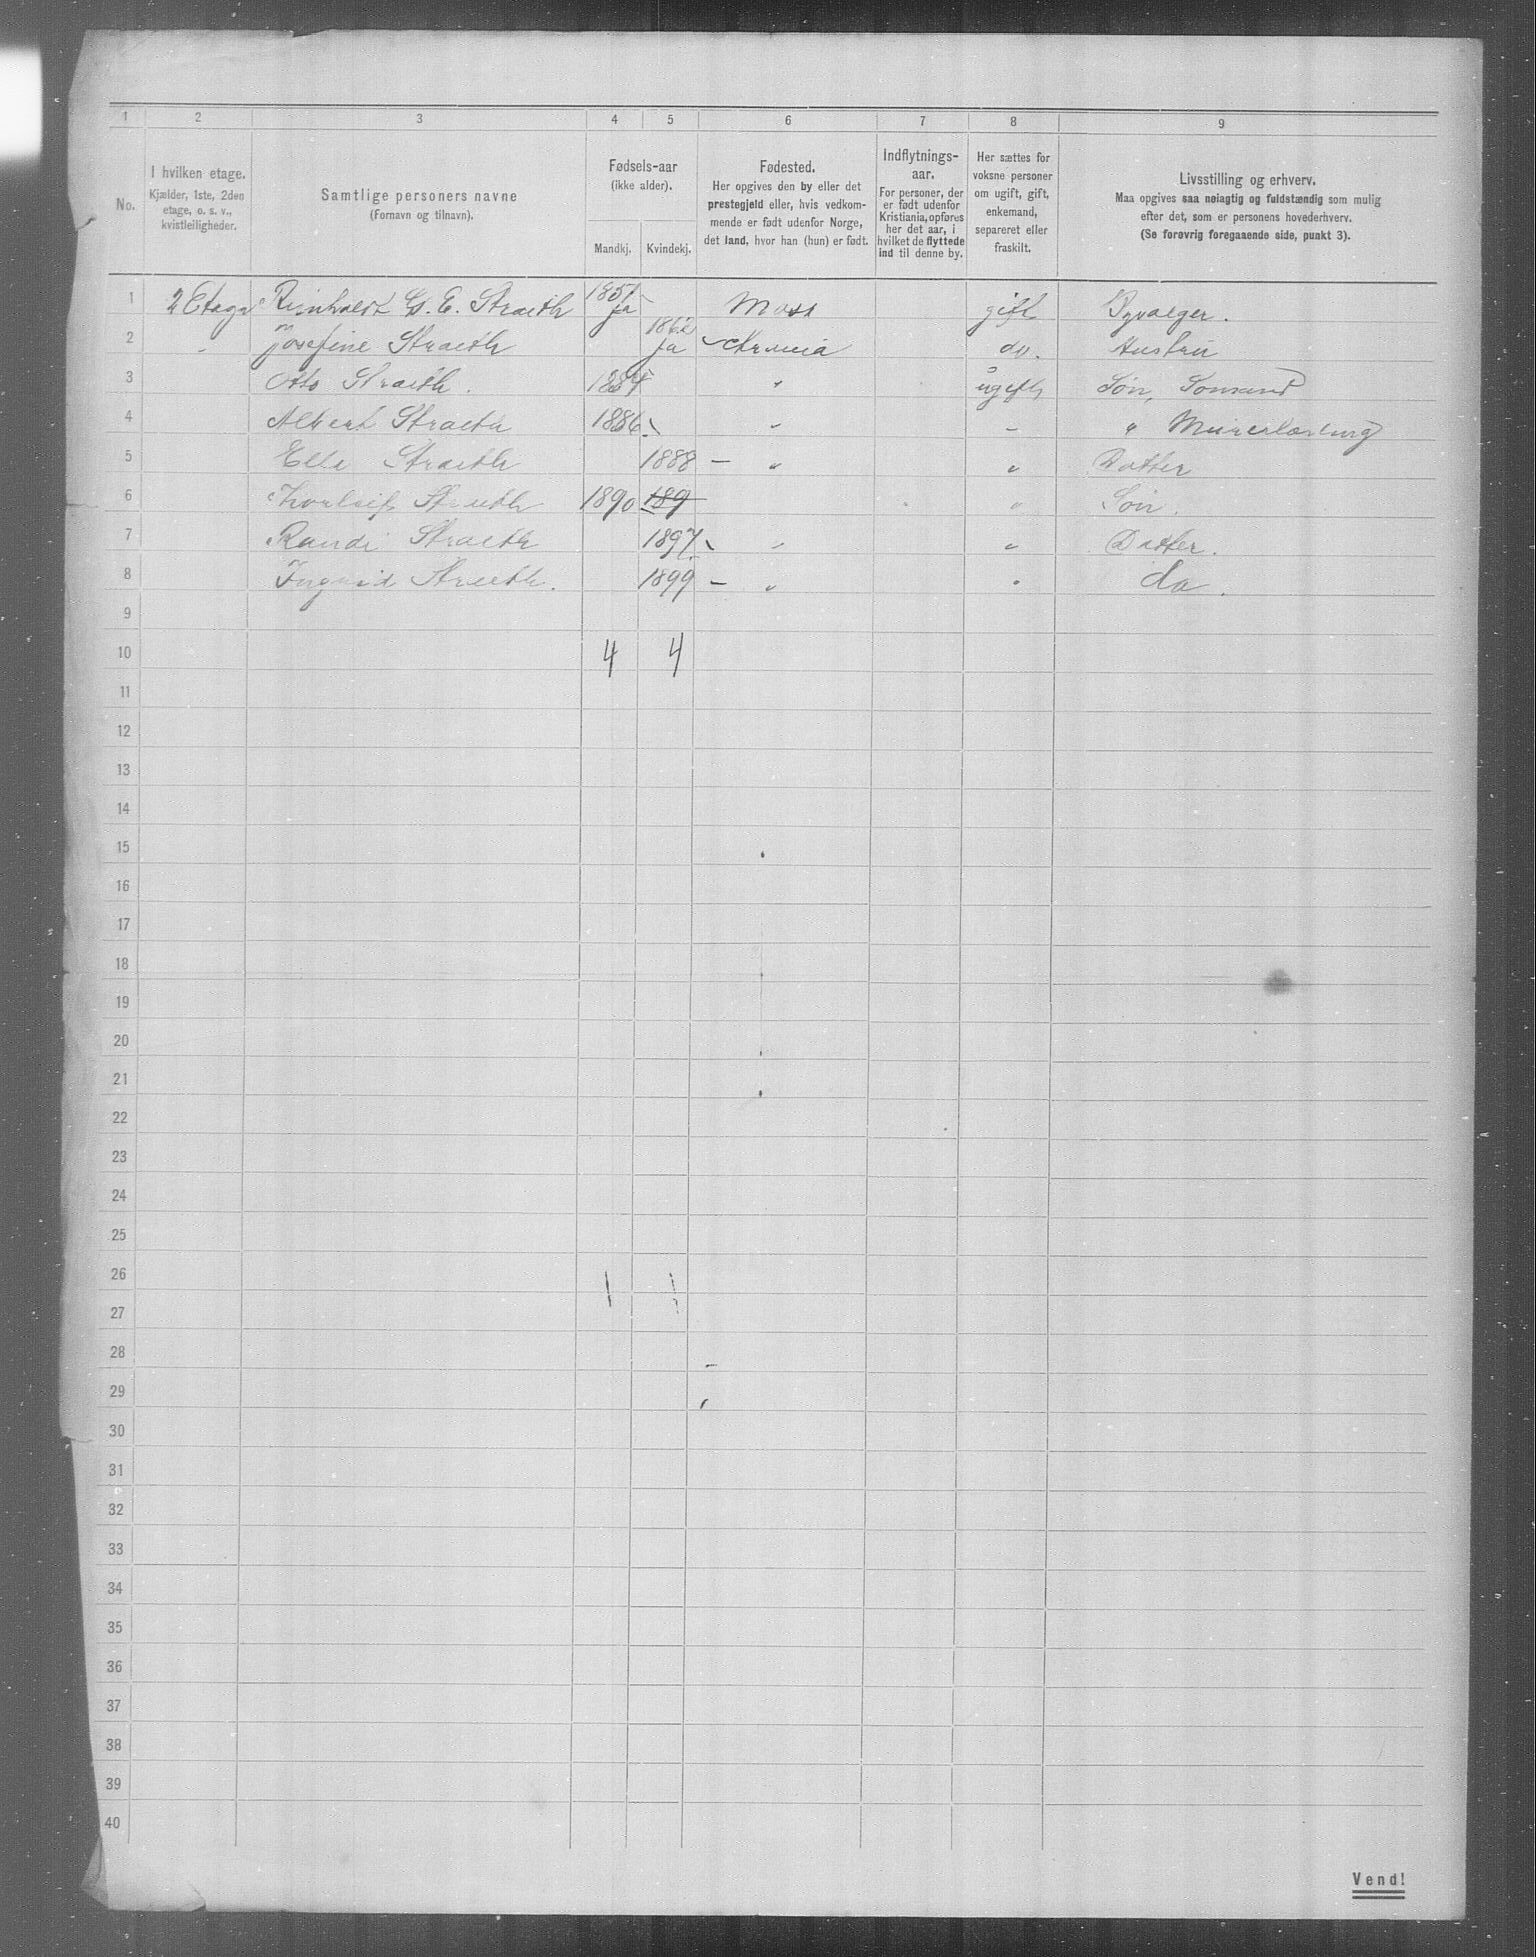 1 2 3 4 5 6 7 8 9
No.
I hvilken etage.
Kjælder, 1ste, 2den
etage, o. s. v.,
kvistleiligheder.
Samtlige personers navne
(Fornavn og tilnavn).
Fødsels-aar
(ikke alder).
Mandkj. Kvindekj.
Fødested.
Her opgives den by eller det
prestegjeld eller, hvis vedkom-
mende er født udenfor Norge,
det land, hvor han (hun) er født.
Indflytnings-
aar.
For personer, der
er født udenfor
Kristiania, opføres
her det aar, i
hvilket de flyttede
ind til denne by.
Her sættes for
voksne personer
om ugift, gift,
enkemand,
separeret eller
fraskilt.
Livsstilling og erhverv.
Maa opgives saa nøiagtig og fuldstændig som mulig
efter det, som er personens hovederhverv.
(Se forøvrig foregaaende side, punkt 3).
1 2 Etage G. E. Straeth 1851 ja Moss gift
2 Josefine Straeth 1862 ja do. Hustru
3 Otto Straeth. 1884 " ugift Søn,
4 Albert Straeth 1886 " - " Murerlærling
5 Ella Straeth 1888 - " " Datter
6 Thorleif Straeth 1890 189 " Søn.
7 Randi Straeth 1897 " " Datter.
8 Ingrid Straeth. 1899 - " " do.
9
10 4 4
11
12
13
14
15
16
17
18
19
20
21
22
23
24
25
26
27
28
29
30
31
32
33
34
35
36
37
38
39
40
Vend!